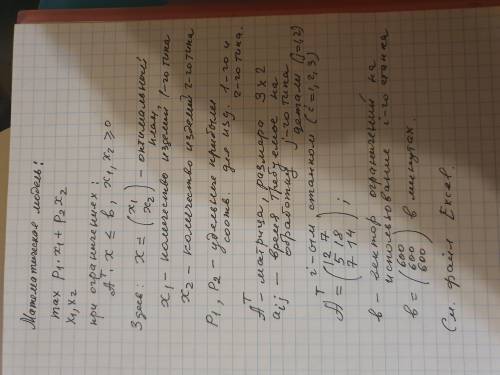 Математическая модель:
max p₁·x₁ + p₂ x₂
x₁, x₂
при ограничениях:
Aᵀ·x ≤ b, x₁, x₂ ≥ 0
Здесь: x = (x₁ x₂) – оптимальный план,
x₁ – количество изделий 1-го типа
x₂ – количество изделий 2-го типа
p₁, p₂ – удельные прибыли
соотв. для изд. 1-го и
2-го типа.
Aᵀ – матрица, размера 3×2
aᵢⱼ – время требуемое на
обработку j-го типа
i-ым станком детали (j=1,2)
(i=1,2,3)
Aᵀ = (12 7
5 18
7 14) ;
b – вектор ограничений на
использование i-го станка
b = (600
600
600) в минутах.
См. файл Excel